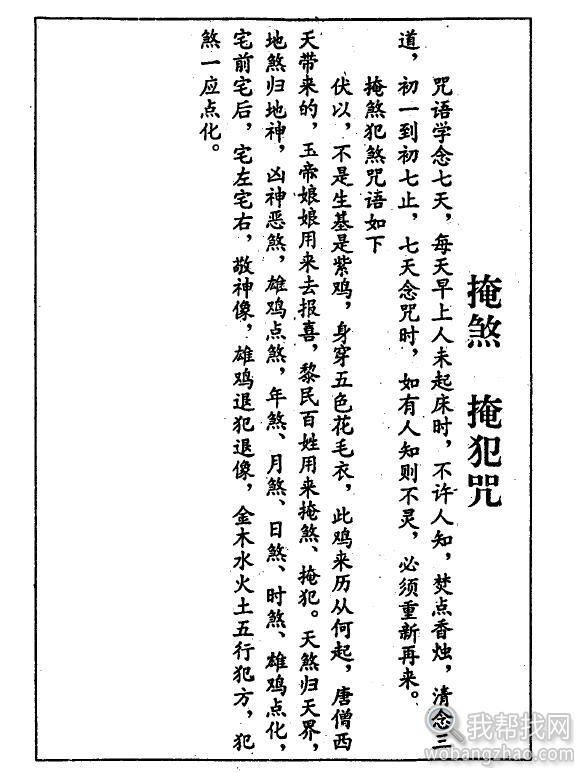 掩煞 掩犯咒
咒语学念七天，每天早上人未起床时，不许人知，焚点香烛，清念三
道，初一到初七止，七天念咒时，如有人知则不灵，必须重新再来。
掩煞犯煞咒语如下
伏以，不是生基是紫鸡，身穿五色花毛衣，此鸡来历从何起，唐僧西
天带来的，玉帝娘娘用来去报喜，黎民百姓用来掩煞、掩犯。天煞归天界，
地煞归地神，凶神恶煞，雄鸡点煞，年煞、月煞、日煞、时煞、雄鸡点化，
宅前宅后，宅左宅右，敬神像，雄鸡退犯退像，金木水火土五行犯方，犯
煞一应点化。
我帮找网
wobangzhao.com